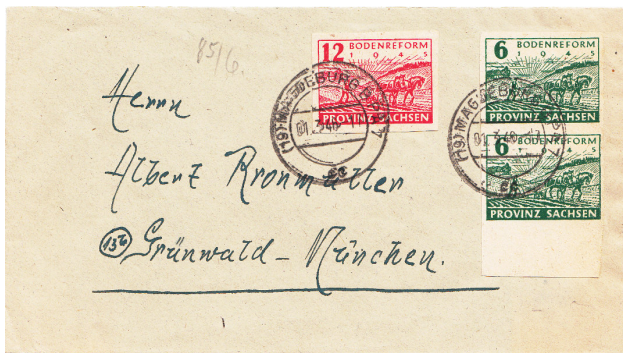 85/6.
12 BODENREFORM
1945
PROVINZ SACHSEN
6 BODENREFORM
1945
PROVINZ SACHSEN
6
1945
PROVINZ SACHSEN
(19) MAGDEBURG
01.3.46
(19) MAGDEBURG
01.3.46
Herrn
Albert Kronmüller
13b Grünwald - München.